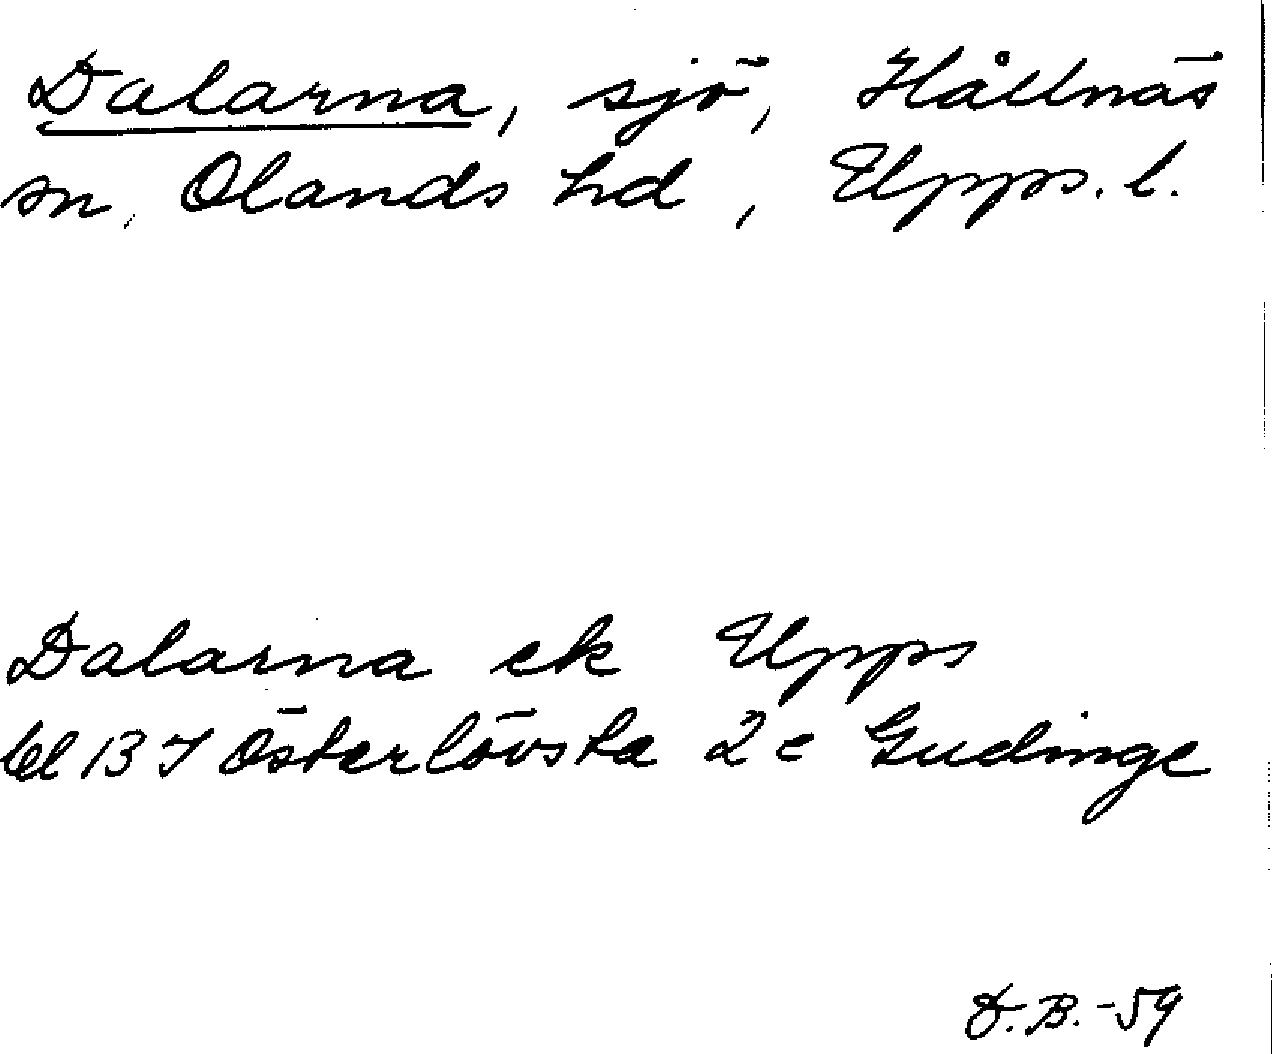 Dalarna, sjö, Hållnäs
sn, Olands hd, Upps. l.
Dalarna ek Upps
bl 137 Österlövsta 2c Gudinge
D.B.-59